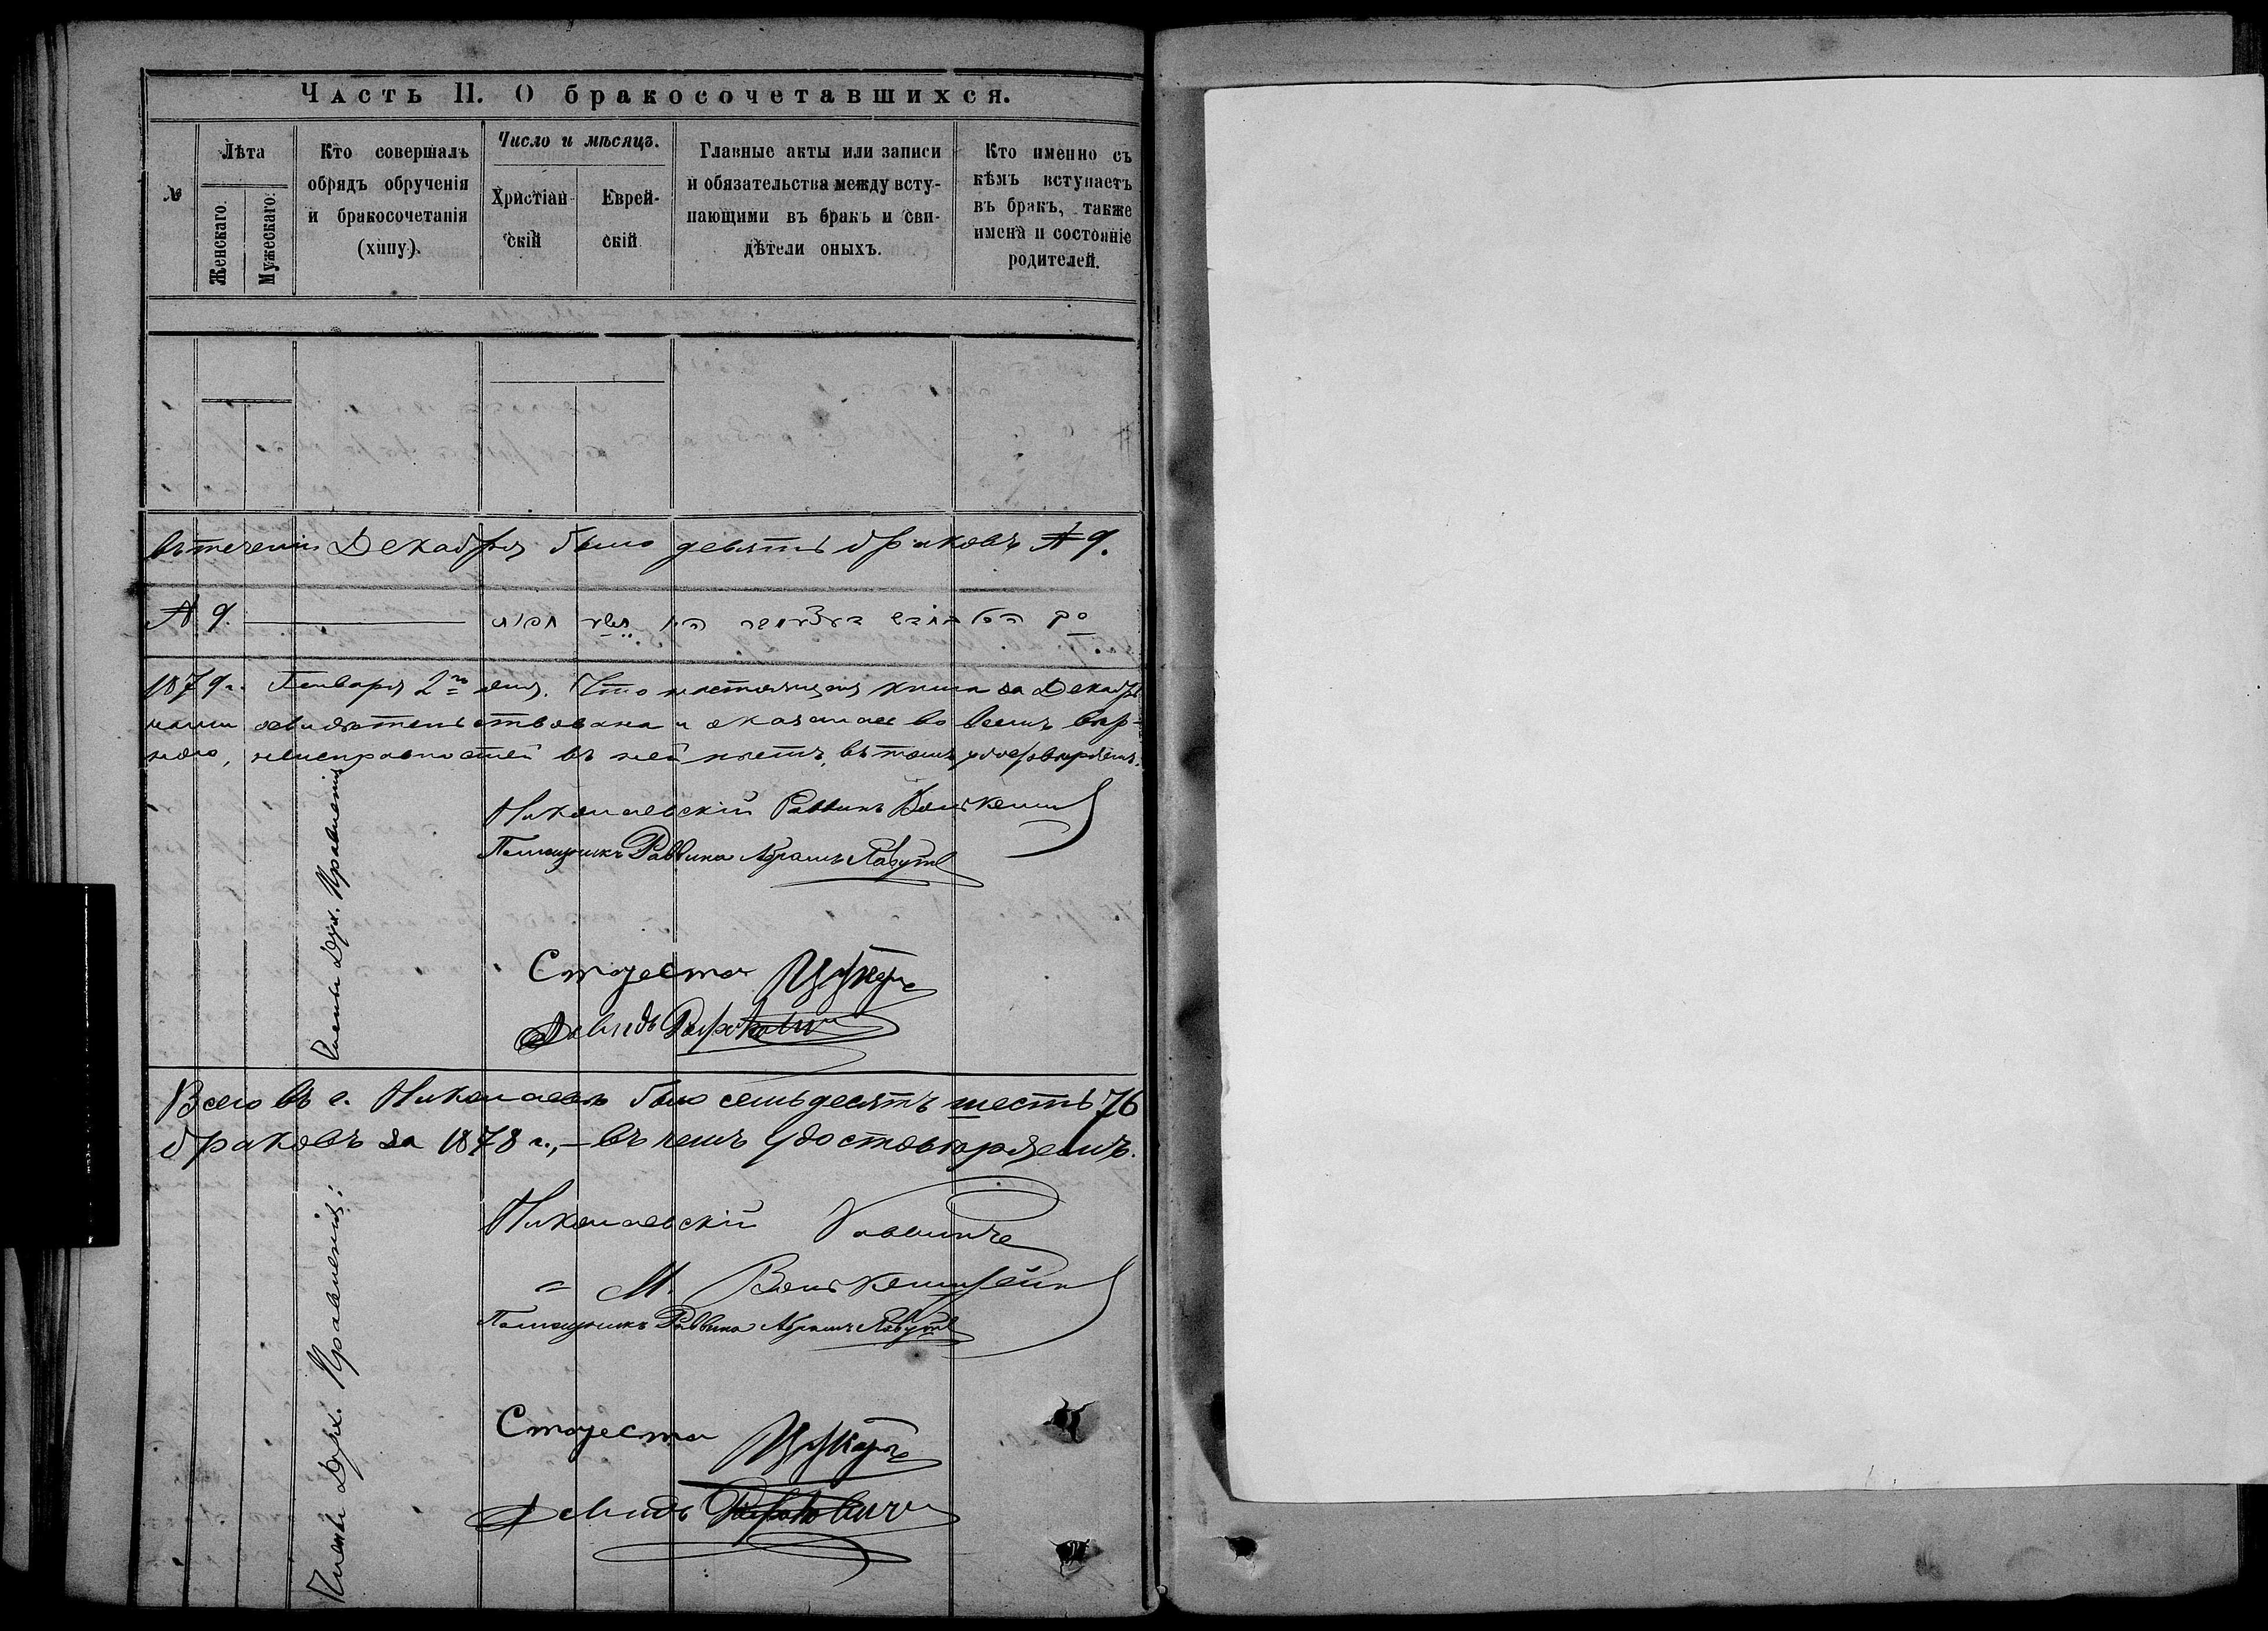 Часть II. О бракосочетавшихся.
№
Лѣта
Женскаго.
Мужескаго.
Кто совершалъ
обрядъ обрученія
и бракосочетанія
(хипу).
Число и мѣсяцъ.
Христіан-
скій
Еврей-
скій
Главные акты или записи
и обязательства между всту-
пающими въ бракъ и сви-
дѣтели оныхъ.
Кто именно съ
кѣмъ вступаетъ
въ бракъ, также
имена и состояніе
родителей.
въ теченіи Декабря было девять браковъ № 9.
№ 9.
1879 г. Генваря 2го дня. Что настоящая книга за Декабрь
нами освидѣтельствована и оказалась во всемъ вѣр-
ною, неисправностей въ ней нѣтъ, въ томъ удостовѣряемъ.
Члены Дух. Правленія
Николаевскій Раввинъ
Помощникъ Раввина Абрамъ
Староста Цукеръ
Давидъ
Всего въ г. Николаевѣ было семьдесятъ шесть 76
браковъ за 1878 г., – въ чемъ удостовѣряемъ.
Члены Дух. Правленія:
Николаевскій Раввинъ
М.
Помощникъ Раввина Абрамъ
Староста Цукеръ
Давидъ